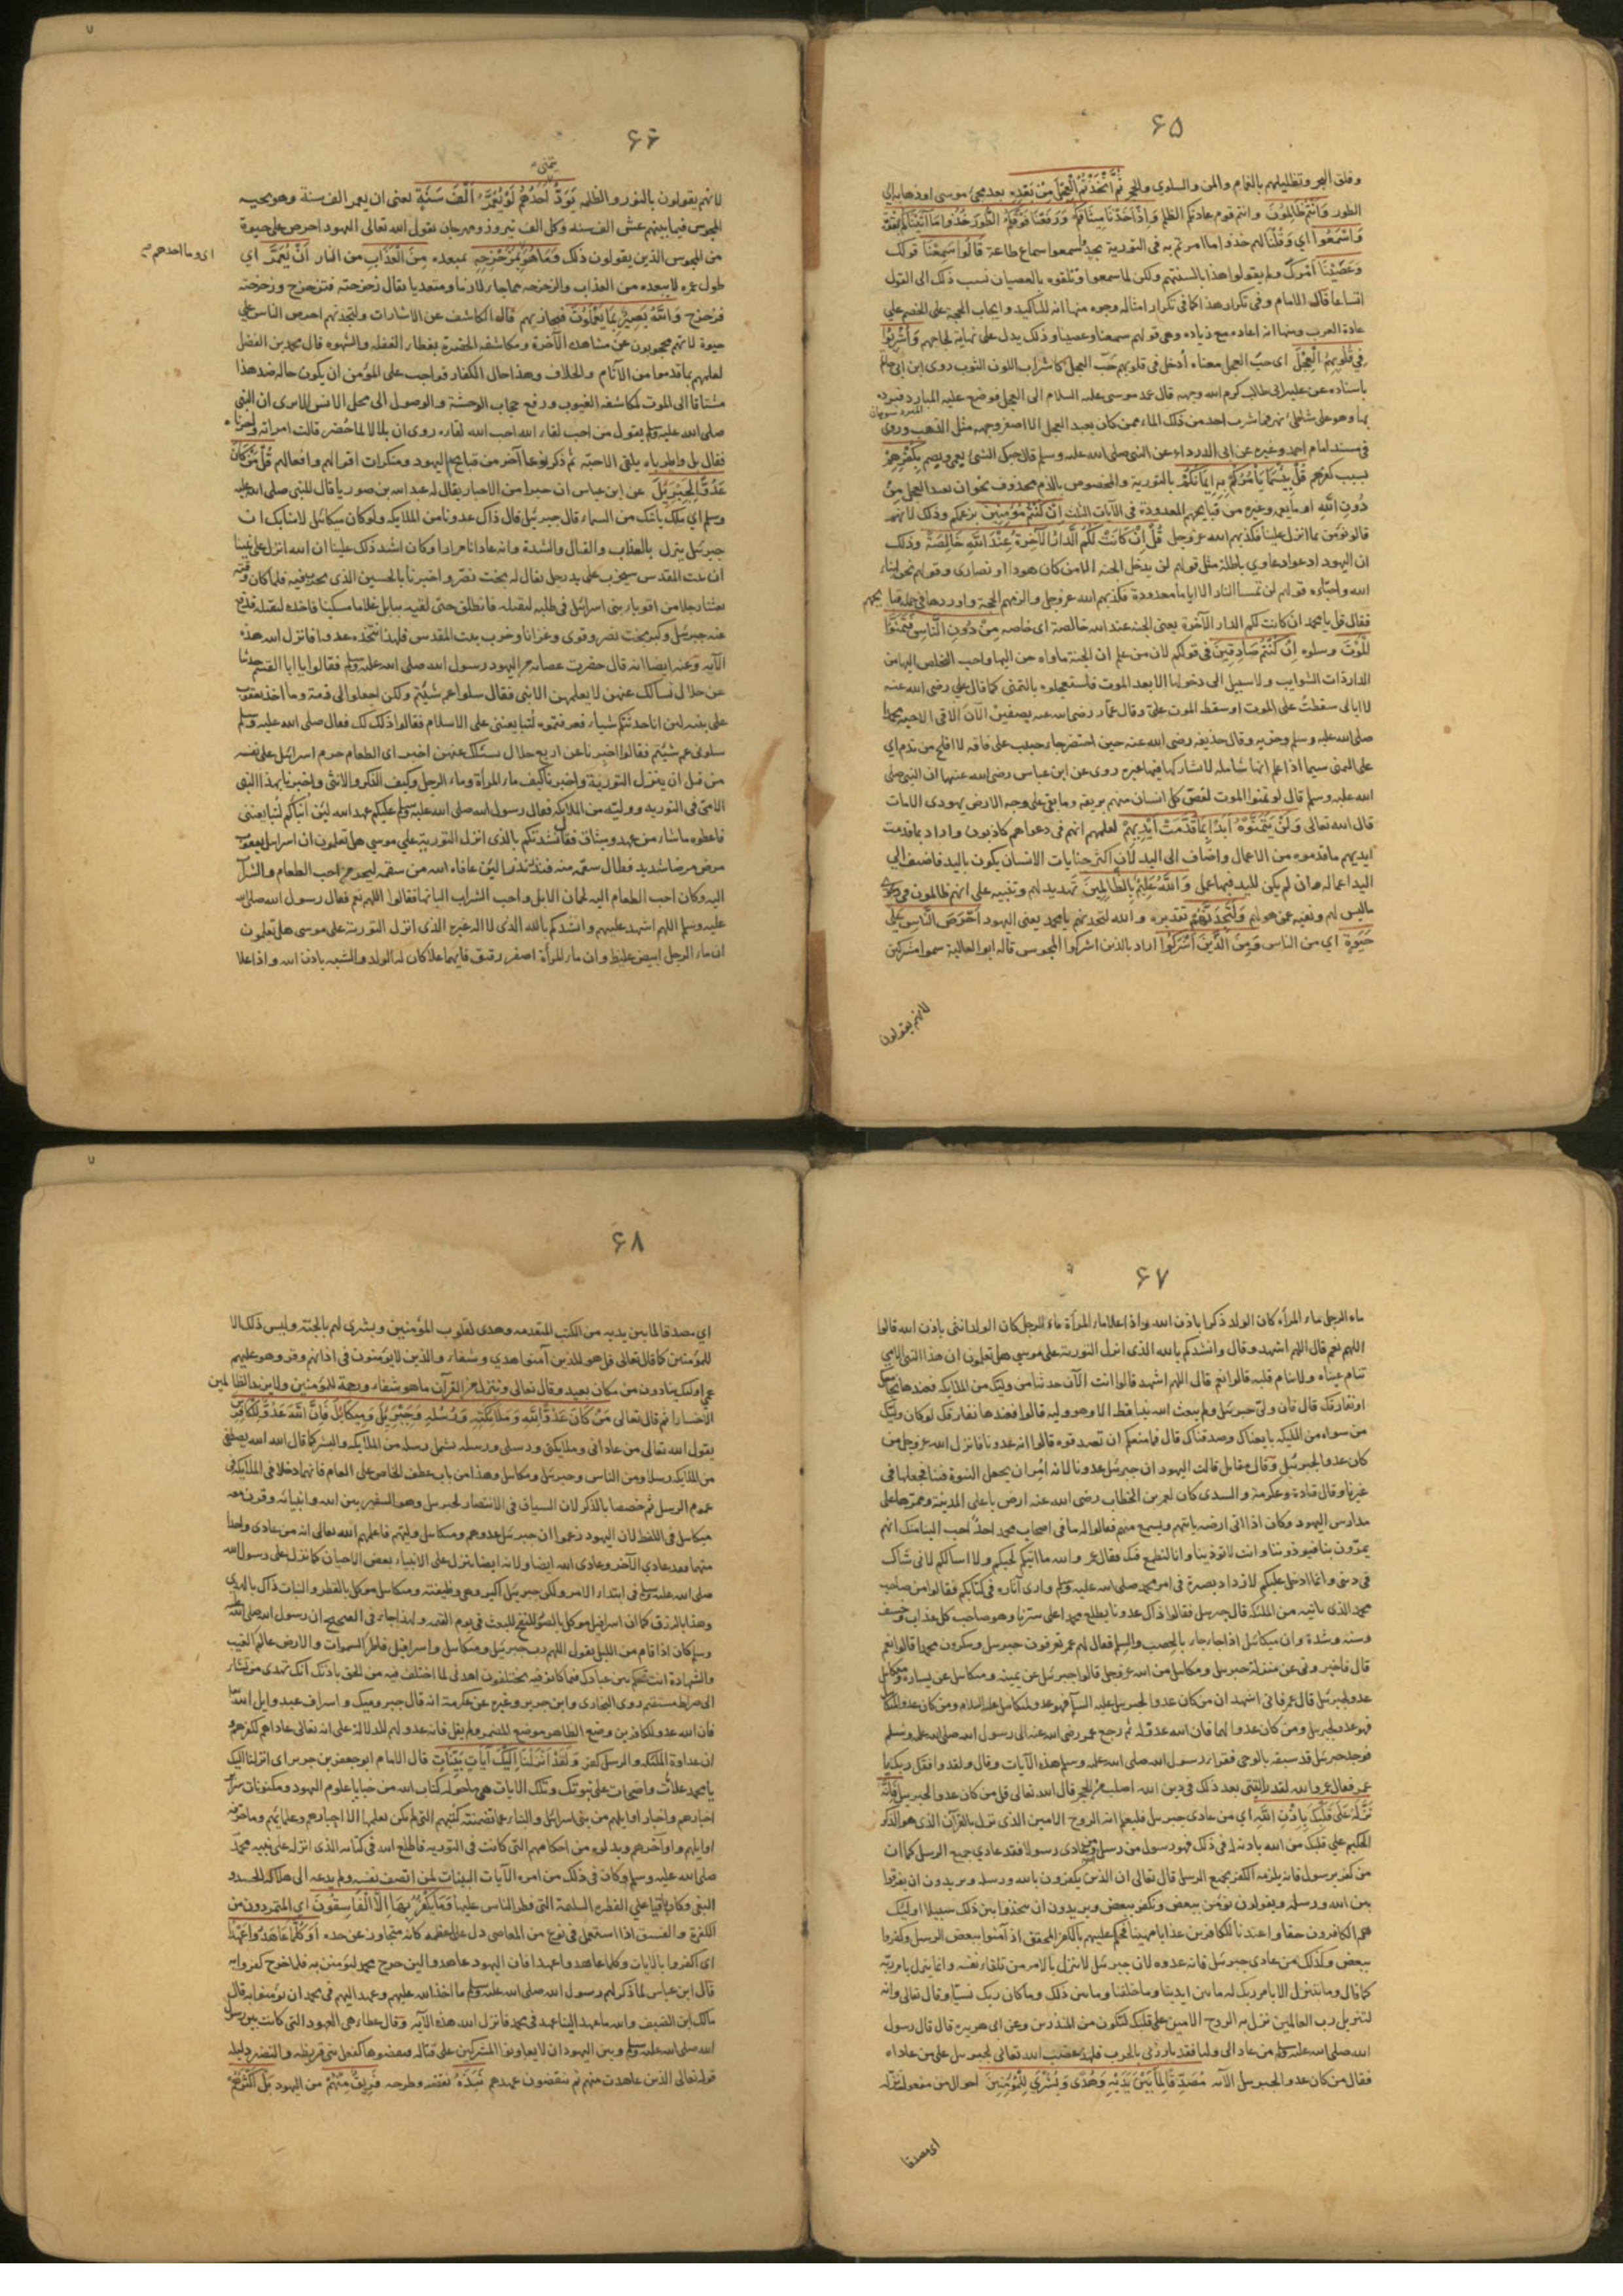 ۶۵
وفلق البحر وتظليلهم بالغمام والمن والسلوى والحجر ثُمَّ اتَّخَذْتُمُ الْعِجْلَ مِنْ بَعْدِهِ بعد مجئ موسى او ذهابه الى
الطور وَاَنْتُمْ ظَالِمُونَ وانتم قوم عادتكم الظلم وَاِذْ اَخَذْنَا مِيثَاقَكُمْ وَرَفَعْنَا فَوْقَكُمُ الطُّورَ خُذُوا مَا آتَيْنَاكُمْ بِقُوَّةٍ
وَاسْمَعُوا اي وَقُلْنَا لهم خذوا ما امرتم به فى التورية بجد واسمعوا سماع طاعة قَالُوا سَمِعْنَا قولك
وَعَصَيْنَا امرك ولم يقولوا هذا بالسنتهم ولكن لما سمعوا وتلقوه بالعصيان نسب ذلك الى القول
اتساعا قال الامام وفى تكرار هذا كما فى تكرار امثاله وجوه منها انه للتاكيد وايجاب الحجة على الخصم على
عادة العرب ومنها انه اعاده مع زياده وهى قولهم سمعنا وعصينا وذلك يدل على نهاية لجاجهم وَاُشْرِبُوا
فِي قُلُوبِهِمُ الْعِجْلَ اى حب العجل معناه أدخل فى قلوبهم حُبّ العجل كاشراب اللون الثوب روى ابن ابى حاتم
باسناده عن على بن ابى طالب كرم الله وجهه قال عمد موسى عليه السلام الى العجل فوضع عليه المبارد فبرده
بها وهو على شاطئ نهر فما شرب احد من ذلك الماء ممن كان يعبد العجل الا اصفر وجهه مثل الذهب وروى
فى مسند امام احمد وغيره عن ابى الدرداء عن النبى صلى الله عليه وسلم قال حبك الشئ يعمى ويصم بِكُفْرِهِمْ
بسبب كفرهم قُلْ بِئْسَمَا يَأْمُرُكُمْ بِهِ اِيمَانُكُمْ بالتورية والمخصوص بالذم محذوف نحو ان تعبدوا العجل مِنْ
دُونِ اللّٰهِ او ما يعمه وغيره من قبايحهم المعدودة فى الآيات الثلث اِنْ كُنْتُمْ مُؤْمِنِينَ بزعمكم وذلك لانهم
قالوا نؤمن بما انزل علينا فكذبهم الله عز وجل قُلْ اِنْ كَانَتْ لَكُمُ الدَّارُ الْآخِرَةُ عِنْدَ اللّٰهِ خَالِصَةً وذلك
ان اليهود ادعوا دعاوي باطلة مثل قولهم لن يدخل الجنه الا من كان هودا او نصارى وقولهم نحن ابناء
الله واحباؤه قولهم لن تمسنا النار الا اياما معدودة فكذبهم الله عز وجل والزمهم الحجة واوردها فى جملة قبايحهم
فقال قل يا محمد ان كانت لكم الدار الآخرة يعنى الجنة عند الله خالصة اى خاصه مِنْ دُونِ النَّاسِ فَتَمَنَّوُا
الْمَوْتَ وسلوه اِنْ كُنْتُمْ صَادِقِينَ فى قولكم لان من علم ان الجنة ماواه حن اليها واحب التخلص اليها من
الدار ذات الشوايب ولا سبيل الى دخولها الا بعد الموت فاستعجلوه بالتمنى كما قال على رضى الله عنه
لا ابالى سقطت على الموت او سقط الموت علي وقال عمار رضى الله عنه بصفين الآن الاقى الاحبه محمدا
صلى الله عليه وسلم وحزبه وقال حذيفه رضى الله عنه حين احتضر جاء حبيب على فاقه لا افلح من ندم اي
على التمنى سيما اذا علم انها شامله لا يشاركها فيها غيره روى عن ابن عباس رضى الله عنهما ان النبى صلى
الله عليه وسلم قال لو تمنوا الموت لغص كل انسان منهم بريقه وما بقى على وجه الارض يهودى الا مات
قال الله تعالى وَلَنْ يَتَمَنَّوْهُ اَبَدًا بِمَا قَدَّمَتْ اَيْدِيهِمْ لعلمهم انهم فى دعواهم كاذبون واراد بما قدمت
ايديهم ما قدموه من الاعمال واضاف الى اليد لان اكثر جنايات الانسان يكون باليد فاضيف الى
اليد اعماله وان لم يكن لليد فيها عمل وَاللّٰهُ عَلِيمٌ بِالظَّالِمِينَ تهديد لهم وتنبيه على انهم ظالمون فى دعوى
ما ليس لهم ونفيه عمن هو لهم وَلَتَجِدَنَّهُمْ تقديره والله لتجدنهم يا محمد يعنى اليهود اَحْرَصَ النَّاسِ عَلَى
حَيٰوةٍ اي من الناس وَمِنَ الَّذِينَ اَشْرَكُوا اراد بالذين اشركوا المجوس قاله ابو العالية سموا مشركين
لانهم يقولون
۶۶
لانهم يقولون بالنور والظلمه يَوَدُّ اَحَدُهُمْ لَوْ يُعَمَّرُ اَلْفَ سَنَةٍ يعنى ان يعمر الف سنة وهو تحيه
المجوس فيما بينهم عش الف سنه وكل الف نيروز ومهرجان يقول الله تعالى اليهود احرص على حيوة
من المجوس الذين يقولون ذلك وَمَا هُوَ بِمُزَحْزِحِهِ بمبعده مِنَ الْعَذَابِ من النار اَنْ يُعَمَّرَ اي
اى وما احدهم
طول عمره لا يبعده من العذاب والزحزحه مما جاء لازما ومتعديا يقال زحزحته فتزحزح وزحزحته
فزحزح وَاللّٰهُ بَصِيرٌ بِمَا يَعْمَلُونَ فيجازيهم قال الكاشف عن الاشارات ولتجدنهم احرص الناس على
حيوة لانهم محجوبون عن مشاهدة الآخرة ومكاشفه الحضرة بغطاء الغفله والشهوه قال محمد بن الفضل
لعلمهم بما قدموا من الآثام والخلاف وهذا حال الكفار فواجب على المؤمن ان يكون حاله ضد هذا
مشتاقا الى الموت لمكاشفه الغيوب ورفع حجاب الوحشة والوصول الى محل الانس الا ترى ان النبى
صلى الله عليه وسلم يقول من احب لقاء الله احب الله لقاءه روى ان بلالا لما حُضر قالت امراته واحزناه
فقال بل واطرباه يلقى الاحبّه ثم ذكر نوعا آخر من قبايح اليهود ومنكرات اقوالهم وافعالهم قُلْ مَنْ كَانَ
عَدُوًّا لِجِبْرِيلَ عن ابن عباس ان حبرا من الاحبار يقال له عبد الله بن صوريا قال للنبى صلى الله عليه
وسلم اي ملك ياتيك من السماء قال جبرئيل قال ذاك عدونا من الملايكه ولو كان ميكائل لآمنا بك ان
جبرئيل ينزل بالعذاب والقتال والشدة وانه عادانا مرارا وكان اشد ذلك علينا ان الله انزل على نبينا
ان بيت المقدس سيخرب على يد رجل يقال له بخت نصر واخبرنا بالحين الذى يخرب فيه فلما كان وقته
بعثنا رجلا من اقوياء بنى اسرائل فى طلبه ليقتله فانطلق حتى لقيه ببابل غلاما مسكينا فاخذه ليقتله فدفع
عنه جبرئيل وكبر بخت نصر وقوى وغزانا وخرب بيت المقدس فلهذا نتخذه عدوا فانزل الله هذه
الآيه وعنه ايضا انه قال حضرت عصابة من اليهود رسول الله صلى الله عليه وسلم فقالوا يا ابا القسم حدثنا
عن خلال نسألك عنهن لا يعلمهن الا نبى فقال سلوا عم شئتم ولكن اجعلوا لى ذمة وما اخذ يعقوب
على بنيه لئن انا حدثتكم شياء فعرفتموه لتبايعننى على الاسلام فقالوا ذلك لك فقال صلى الله عليه وسلم
سلونى عم شئتم فقالوا اخبرنا عن اربع خلال نسئلك عنهن اخبرنا اى الطعام حرم اسرائل على نفسه
من قبل ان ينزل التورية واخبرنا كيف ماء المرأة وماء الرجل وكيف الذكر والانثى واخبرنا بهذا النبى
الامى فى التوريه ووليّه من الملايكه فقال رسول الله صلى الله عليه وسلم عليكم عهد الله لئن انبأكم لتبايعننى
فاعطوه ما شاء من عهد وميثاق فقال انشدتكم بالذى انزل التورية على موسى هل تعلمون ان اسرائل يعقوب
مرض مرضا شديد فطال سقمه منه فنذر نذرا لئن عافاه الله من سقمه ليحرمن احب الطعام والشراب
اليه وكان احب الطعام اليه لحمان الابل واحب الشراب البانها فقالوا اللهم نعم فقال رسول الله صلى الله
عليه وسلم اللهم اشهد عليهم وانشدكم بالله الذى لا اله غيره الذى انزل التورية على موسى هل تعلمون
ان ماء الرجل ابيض غليظ وان ماء المرأة اصفر رقيق فايهما علا كان له الولد والشبه باذن الله واذا علا
۶۷
ماء الرجل ماء المرأه كان الولد ذكرا باذن الله واذا علا ماء المرأة ماء الرجل كان الولد انثى باذن الله قالوا
اللهم نعم قال اللهم اشهد وقال وانشدكم بالله الذى انزل التورية على موسى هل تعلمون ان هذا النبى الامى
تنام عيناه ولا ينام قلبه قالوا نعم قال اللهم اشهد قالوا انت الآن حدثنا من وليك من الملايكه فعندها نجامعك
او نفارقك قال فان وليّ جبرئيل ولم يبعث الله نبيا قط الا وهو وليه قالوا فعندها نفارقك لو كان وليك
من سواه من المليكه بايعناك وصدقناك قال فما منعكم ان تصدقوه قالوا انه عدونا فانزل الله عز وجل من
كان عدوا لجبرئيل وقال مقاتل قالت اليهود ان جبرئيل عدونا لانه اُمر ان يجعل النبوة فينا فجعلها فى
غيرنا وقال قتادة وعكرمة والسدى كان لعمر بن الخطاب رضى الله عنه ارض باعلى المدينة وممرها على
مدارس اليهود وكان اذا اتى ارضه ياتيهم ويسمع منهم فقالوا له ما فى اصحاب محمد احدٌ احب الينا منك انهم
يمرّون بنا فيوذوننا وانت لا توذينا وانا لنطمع فيك فقال عمر والله ما اتيكم لحبكم ولا اسالكم لانى شاك
فى دينى وانما ادخل عليكم لازداد بصيرة فى امر محمد صلى الله عليه وسلم وارى آثاره فى كتابكم فقالوا من صاحب
محمد الذى ياتيه من المليكه قال جبرئيل فقالوا ذاك عدونا يطلع محمدا على سترنا وهو صاحب كل عذاب وخسف
وسنه وشدة وان ميكائل اذا جاء جاء بالخصب والسلم فقال لهم عمر تعرفون جبرئيل وتنكرون محمدا قالوا نعم
قال فاخبرونى عن منزلة جبرئيل وميكائيل من الله عز وجل قالوا جبرئيل عن يمينه وميكائل عن يساره وميكائل
عدو لجبرئيل قال عمر فانى اشهد ان من كان عدوا لجبرئيل عليه السلم فهو عدو لميكائل عليه السلام ومن كان عدو لميكائل
فهو عدو لجبرئيل ومن كان عدوا لهما فان الله عدو له ثم رجع عمر رضى الله عنه الى رسول الله صلى الله عليه وسلم
فوجد جبرئيل قد سبقه بالوحى فقرا رسول الله صلى الله عليه وسلم هذه الآيات وقال ولقد وافقك ربك يا
عمر فقال عمر والله لقد رايتنى بعد ذلك فى دين الله اصلب من الحجر قال الله تعالى قل من كان عدوا لجبرئيل فَاِنَّهُ
نَزَّلَهُ عَلَى قَلْبِكَ بِاِذْنِ اللّٰهِ اى من عادى جبرئيل فليعلم انه الروح الامين الذى نزل بالقرآن الذى هو الذكر
الحكيم على قلبك من الله باذنه له فى ذلك فهو رسول من رسل الله ومن عادى رسولا فقد عادي جميع الرسل كما ان
من كفر برسول فانه يلزمه الكفر بجميع الرسل قال تعالى ان الذين يكفرون بالله ورسله ويريدون ان يفرقوا
بين الله ورسله ويقولون نؤمن ببعض ونكفر ببعض ويريدون ان يتخذوا بين ذلك سبيلا اولئك
هم الكافرون حقا واعتدنا للكافرين عذابا مهينا فحكم عليهم بالكفر المحقق اذ آمنوا ببعض الرسل وكفروا
ببعض وكذلك من عادى جبرئيل فانه عدو لله لان جبرئيل لا ينزل بالامر من تلقاء نفسه وانما ينزل بامر ربّه
كما قال وما نتنزل الا بامر ربك له ما بين ايدينا وما خلفنا وما بين ذلك وما كان ربك نسيّا وقال تعالى وانه
لتنزيل رب العالمين نزل به الروح الامين على قلبك لتكون من المنذرين وعن ابى هريره قال قال رسول
الله صلى الله عليه وسلم من عاد الى وليا فقد بارزنى بالحرب فلهذا غضب الله تعالى لجبرئيل على من عاداه
فقال من كان عدوا لجبرئيل الآيه مُصَدِّقًا لِمَا بَيْنَ يَدَيْهِ وَهُدًى وَبُشْرٰى لِلْمُؤْمِنِينَ احوال من مفعول نزله
اى مصدقا
۶۸
اي مصدقا لما بين يديه من الكتب المتقدمه وهدى لقلوب المؤمنين وبشرى لهم بالجنة وليس ذلك الا
للمؤمنين كما قال تعالى قل هو للذين آمنوا هدي وشفاء والذين لا يؤمنون فى اذانهم وقر وهو عليهم
عمى اولئك ينادون من مكان بعيد وقال تعالى وننزل من القرآن ما هو شفاء ورحمة للمؤمنين ولا يزيد الظالمين
الا خسارا ثم قال تعالى مَنْ كَانَ عَدُوًّا لِلّٰهِ وَمَلَائِكَتِهِ وَرُسُلِهِ وَجِبْرِيلَ وَمِيكَائِلَ فَاِنَّ اللّٰهَ عَدُوٌّ لِلْكَافِرِينَ
يقول الله تعالى من عادانى وملايكتى ورسلى ورسله يشمل رسله من الملايكه والبشر كما قال الله الله يصطفى
من الملايكه رسلا ومن الناس وجبرئيل وميكائيل وهذا من باب عطف الخاص على العام فانهما دخلا فى الملايكه فى
عموم الرسل ثم خصصا بالذكر لان السياق فى الانتصار لجبرئيل وهو السفير بين الله وانبيائه وقرن معه
ميكائيل فى اللفظ لان اليهود زعموا ان جبرئيل عدوهم وميكائيل وليهم فاعلمهم الله تعالى انه من عادى واحدا
منهما فقد عادي الآخر وعادى الله ايضا ولانه ايضا ينزل على الانبياء بعض الاحيان كما نزل على رسول الله
صلى الله عليه وسلم فى ابتداء الامر ولكن جبرئيل اكبر وهى وظيفته وميكائيل موكل بالقطر والنبات ذاك بالهدى
وهذا بالرزق كما ان اسرافيل موكل بالصور للنفخ للبعث فى يوم القيمه ولهذا جاء فى الصحيح ان رسول الله صلى الله عليه
وسلم كان اذا قام من الليل يقول اللهم رب جبرئيل وميكائيل واسرافيل فاطر السموات والارض عالم الغيب
والشهادة انت تحكم بين عبادك فيما كانوا فيه يختلفون اهدنى لما اختلف فيه من الحق باذنك انك تهدى من تشاء
الى صراط مستقيم روى البخارى وابن جرير وغيره عن عكرمة انه قال جبر وميك واسراف عبد وايل الله
فان الله عدو للكافرين وضع الظاهر موضع المضمر ولم يقل فانه عدو لهم للدلالة على انه تعالى عاداهم لكفرهم و
ان عداوة المليكه والرسل كفر وَلَقَدْ اَنْزَلْنَا اِلَيْكَ آيَاتٍ بَيِّنَاتٍ قال الامام ابو جعفر بن جرير اى انزلنا اليك
يا محمد علامات واضحات على نبوتك وتلك الايات هى ما حواه كتاب الله من خبايا علوم اليهود ومكنونات سراير
اخبارهم واخبار اوايلهم من بنى اسرائل والنباء عما تضمنته كتبهم التى لم يكن يعلمها الا احبارهم وعلمائهم وما حرفه
اوايلهم واواخرهم وبدلوه من احكامهم التى كانت فى التوريه فاطلع الله فى كتابه الذى انزله على نبيه محمد
صلى الله عليه وسلم وكان فى ذلك من امره الآيات البينات لمن انصف نفسه ولم يدعه الى هلاكه الحسد و
البغى وكان باقيا على الفطره السليمة التى فطر الناس عليها وَمَا يَكْفُرُ بِهَا اِلَّا الْفَاسِقُونَ اي المتمردون من
الكفرة والفسق اذا استعمل فى نوع من المعاصى دل على عظمه كانه متجاوز عن حده اَوَكُلَّمَا عَاهَدُوا عَهْدًا
اى اكفروا بالايات وكلما عاهدوا عهدا فان اليهود عاهدوا لئن خرج محمد لنؤمنن به فلما خرج كفروا به
قال ابن عباس لما ذكر لهم رسول الله صلى الله عليه وسلم ما اخذ الله عليهم وعهد اليهم فى محمد ان يؤمنوا به قال
مالك ابن الضيف والله ما عهد الينا عهد فى محمد فانزل الله هذه الآيه وقال عطاء هى العهود التى كانت بين رسول
الله صلى الله عليه وسلم وبين اليهود ان لا يعاونوا المشركين على قتاله فنقضوها كفعل بنى قريظه والنضير دليله
قوله تعالى الذين عاهدت منهم ثم ينقضون عهدهم نَبَذَهُ نقضه وطرحه فَرِيقٌ مِنْهُمْ من اليهود بَلْ اَكْثَرُهُمْ